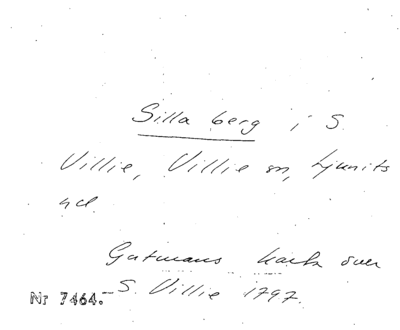 Silla berg i S.
Villie, Villie sn, Ljunits
hd.
Gutmans karta över
S. Villie 1797.
Nr 7464.